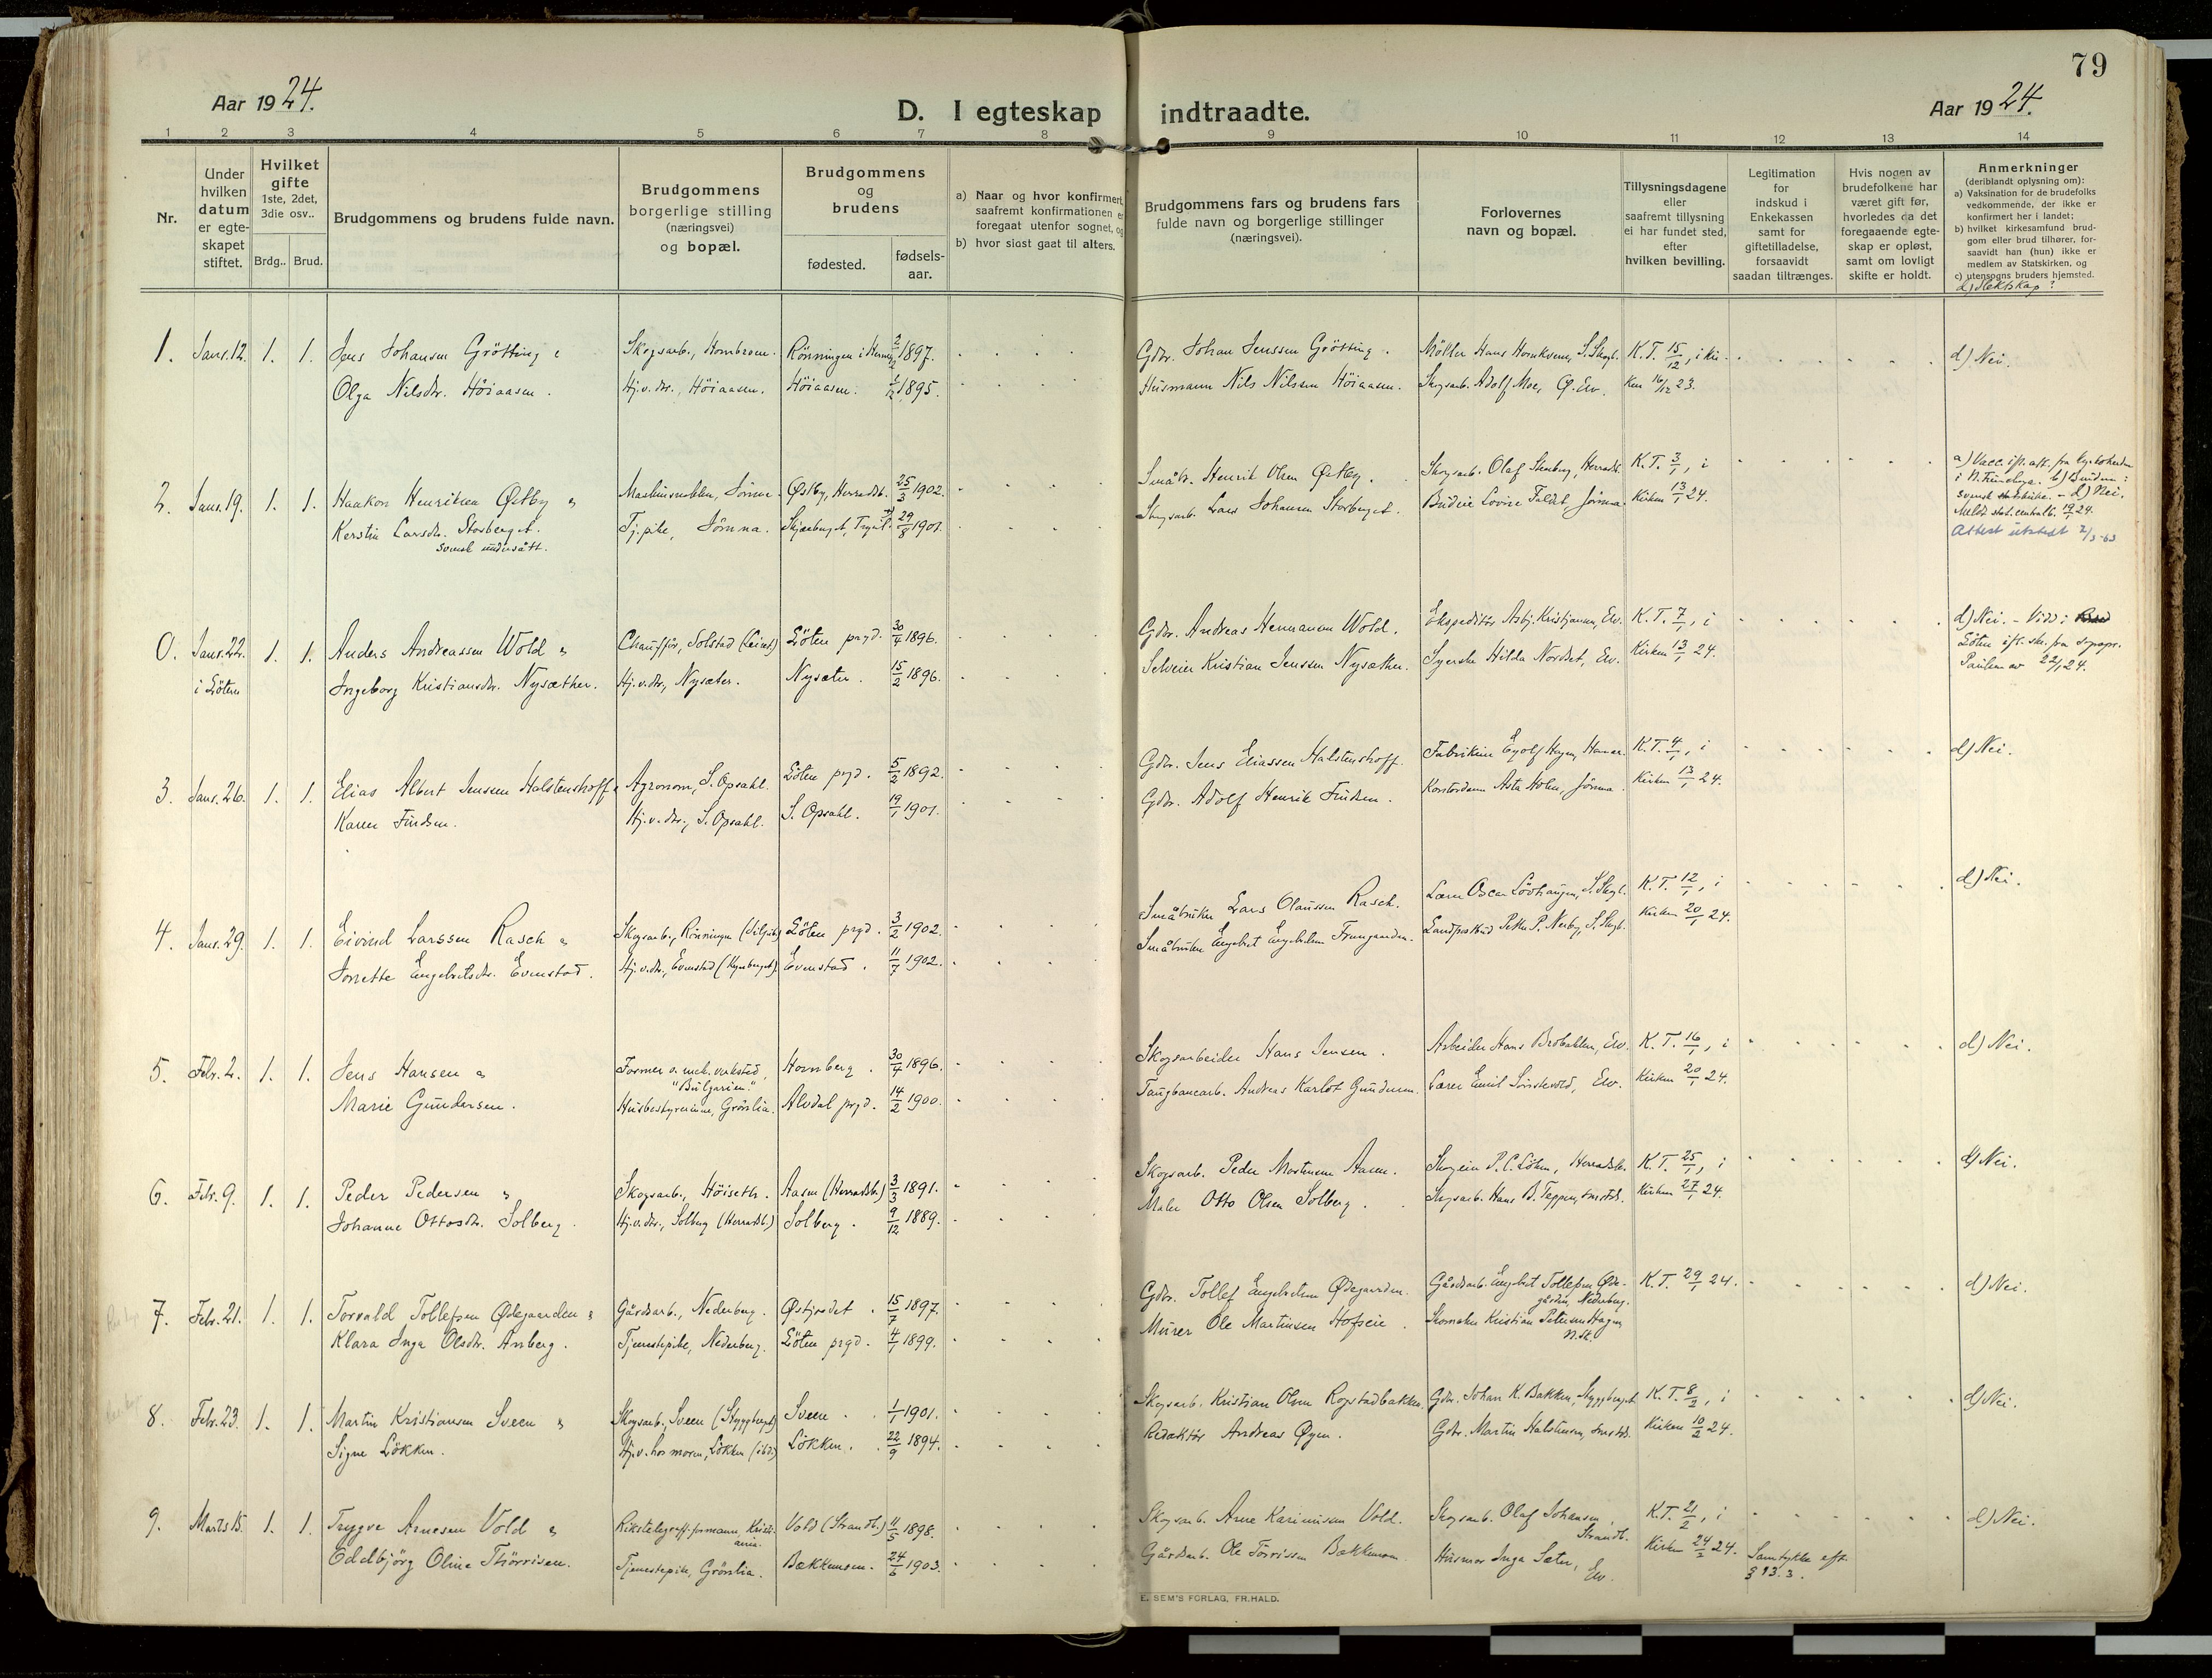 79
Aar 1924.
D. I egteskap indtraadte.
Aar 1924.
1 2 3 4 5 6 7 8 9 10 11 12 13 14
Nr.
Under hvilken datum er egte-skapet stiftet.
Hvilket gifte 1ste, 2det, 3die osv..
Brdg.. Brud.
Brudgommens og brudens fulde navn.
Brudgommens borgerlige stilling (næringsvei) og bopæl.
Brudgommens og brudens
fødested.
fødsels-aar.
a) Naar og hvor konfirmert, saafremt konfirmationen er foregaat utenfor sognet, og
b) hvor sidst gaat til alters.
Brudgommens fars og brudens fars fulde navn og borgerlige stillinger (næringsvei).
Forlovernes navn og bopæl.
Tillysningsdagene eller saafremt tillysning ei har fundet sted, efter hvilken bevilling.
Legitimation for indskud i Enkekassen samt for giftetilladelse, forsaavidt saadan tiltrænges.
Hvis nogen av brudefolkene har været gift før, hvorledes da det foregaaende egte-skap er opløst, samt om lovligt skifte er holdt.
Anmerkninger (deriblandt oplysning om):
a) Vaksination for de brudefolks vedkommende, der ikke er konfirmert her i landet;
b) hvilket kirkesamfund brud-gom eller brud tilhører, for-saavidt han (hun) ikke er medlem av Statskirken, og
c) utensogns bruders hjemsted.
d) Slektskap?
1. Janr. 12. 1. 1. Jens Johansen Grötting Skogsarb., Hornbroen. Rönningen i Hernes 2/2 1897. Gdbr. Johan Jenssen Grötting. Möller Hans Hornkvern, S. Skogb. K.T. 15/12, i Kir-
Olga Nilsdtr. Höiaasen. Hj.v.dtr., Höiaasen. Höiaasen. 1/12 1895. Husmann Nils Nilsen Höiaasen. Skogsarb. Adolf Moe, Ø. Elv. ken 16/12 23. d) Nei.
2. Janr. 19. 1. 1. Haakon Henriksen Østby Østby, Herradsb. 25/3 1902. Småbr. Henrik Olsen Østby. Skogsarb. Olaf Stenberg, Herradsb. K.T. 3/1, i
Kerstin Larsdtr. Storberget. Tj.pike, Jömna. Skjæreberget, Trysil. 29/8 1901. Skogsarb. Lars Johansen Storberget. Budeie Lovise Faldet, Jömna. Kirken 13/1 24.
svensk undersått.
a) Vacc. ifl. att. fra
b) Bruden: svensk statskirke. - d) Nei.
Meldt stat. centralb. 19/1 24.
Attest utstedt 2/3-63
0. Janr. 22. 1. 1. Anders Andreassen Wold Chauffør, Solstad (Leiret) Löten prgd. 30/4 1896. Gdbr. Andreas Hermansen Wold. Ekspeditör Asbj. Kristjansen, Elv. K.T. 7/1, i
i Löten Ingeborg Kristiansdtr. Nysæther. Hj.v.dtr., Nysæter. Nysæter. 15/2 1896. Selveier Kristian Jenssen Nysæther. Syerske Hilda Nordset, Elv. Kirken 13/1 24.
d) Nei. - Viet i Löten ifl. skr. fra sogepr. Paulsen av 22/1 24.
3. Janr. 26. 1. 1. Elias Albert Jenssen Halstenshoff Agronom, S. Opsahl. Löten prgd. 5/2 1892. Gdbr. Jens Eliassen Halstenshoff. Fabrikeier Eyolf Hagen, Hamar. K.T. 4/1, i
Karen Findsen. Hj.v.dtr., S. Opsahl. S. Opsahl. 19/1 1901. Gdbr. Adolf Henrik Findsen. Kontordame Asta Holen, Jömna. Kirken 13/1 24. d) Nei.
4. Janr. 29. 1. 1. Eivind Larssen Rasch Skogsarb., Rönningen Löten prgd. 3/2 1902. Småbruker Lars Olaussen Rasch. Lærer Oscar Lövhaugen, S. Skogb. K.T. 12/1, i
Jonette Engebretsdtr. Evenstad. Hj.v.dtr., Evenstad (Kynberget). Evenstad. 11/7 1902. Småbruker Engebret Engebretsen Landpostbud Petter P. Nerby, S. Skogb. Kirken 20/1 24. d) Nei.
5. Febr. 2. 1. 1. Jens Hansen Former v. mek. verksted, "Bulgarien" Hornberg. 30/7 1896. Skogsarbeider Hans Jensen. Arbeider Hans Brobakken, Elv. K.T. 16/1, i
Marie Gundersen. Husbestyrerinne, Grönlia. Alvdal prgd. 14/2 1900. Taugbanearb. Andreas Karlot Gundersen. Lærer Emil Elv. Kirken 20/1 24. d) Nei.
6. Febr. 9. 1. 1. Peder Pedersen Skogsarb., Höiseth. Aasen (Herradsb.) 3/3 1891. Skogsarb. Peder Mortensen Aasen. Skogeier P.C. Löken, Herradsb. K.T. 25/1, i
Johanne Ottosdtr. Solberg. Hj.v.dtr., Solberg (Herradsb.) Solberg. 9/12 1889. Maler Otto Olsen Solberg. Skogsarb. Hans B. Teppen, smstds. Kirken 27/1 24. d) Nei.
7. Febr. 21. 1. 1. Torvald Tollefsen Ødegaarden Gårdsarb., Nederberg. Østjordet. 15/7 1897. Gdbr. Tollef Engebretsen Ødegaarden. Gårdsarb. Engebret Tollefsen Øde-gården, Nederberg. K.T. 29/1 24.
Klara Inga Olsdtr. Anberg. Tjenestepike, Nederberg. Löten prgd. 4/1 1899. Murer Ole Martinsen Hofseie. Skomaker Kristian Petersen Hagen, N.Sk. d) Nei.
8. Febr. 23. 1. 1. Martin Kristiansen Sveen Skogsarb., Sveen (Skyggberget) Sveen. 1/1 1901. Skogsarb. Kristian Olsen Rogstadbakken. Gdbr. Johan K. Bakken, Skyggberget K.T. 8/2, i
Signe Lökken. Hj.v. hos moren, Lökken (ibd.) Lökken. 22/9 1894. Redaktör Andreas Øyen. Gdbr. Martin Halstensen, smstds. Kirken 10/2 24. d) Nei.
9. Marts 15. 1. 1. Trygve Arnesen Vold Rikstelegraff. formann, Kristi-ania. Vold (Strandb.) 11/5 1898. Skogsarb. Arne Karinusen Vold. Skogsarb. Olaf Johansen, Strandb. K.T. 21/2, i
Edelbjörg Oline Thörrisen. Tjenestepike, Grönlia. Bækkemoen. 24/6 1903. Gårdsarb. Ole Törrissen Bækkemoen. Husmor Inga Sæter, Elv. Kirken 24/2 24. Samtykke eft. § 13.3. d) Nei.
E. SEM'S FORLAG, FR.HALD.